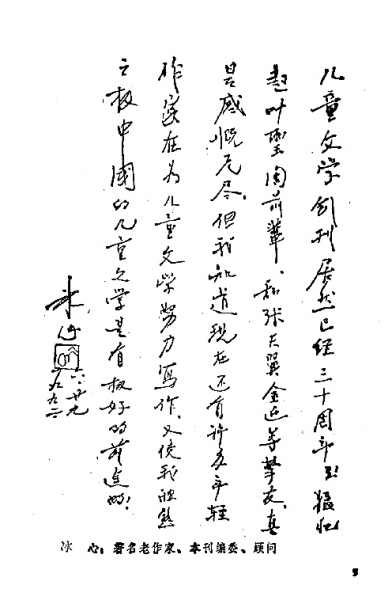 儿童文学创刊居然已经三十周年
叶圣陶前辈、和张天翼金近等挚友,真
是感慨无尽。但我知道现在还有许多年轻
作家在为儿童文学努力写作,又使我欣慰
之极中国的儿童文学是有极好的前途的!
冰心
六·廿九
冰 心:著名老作家、本刊编委、顾问
5